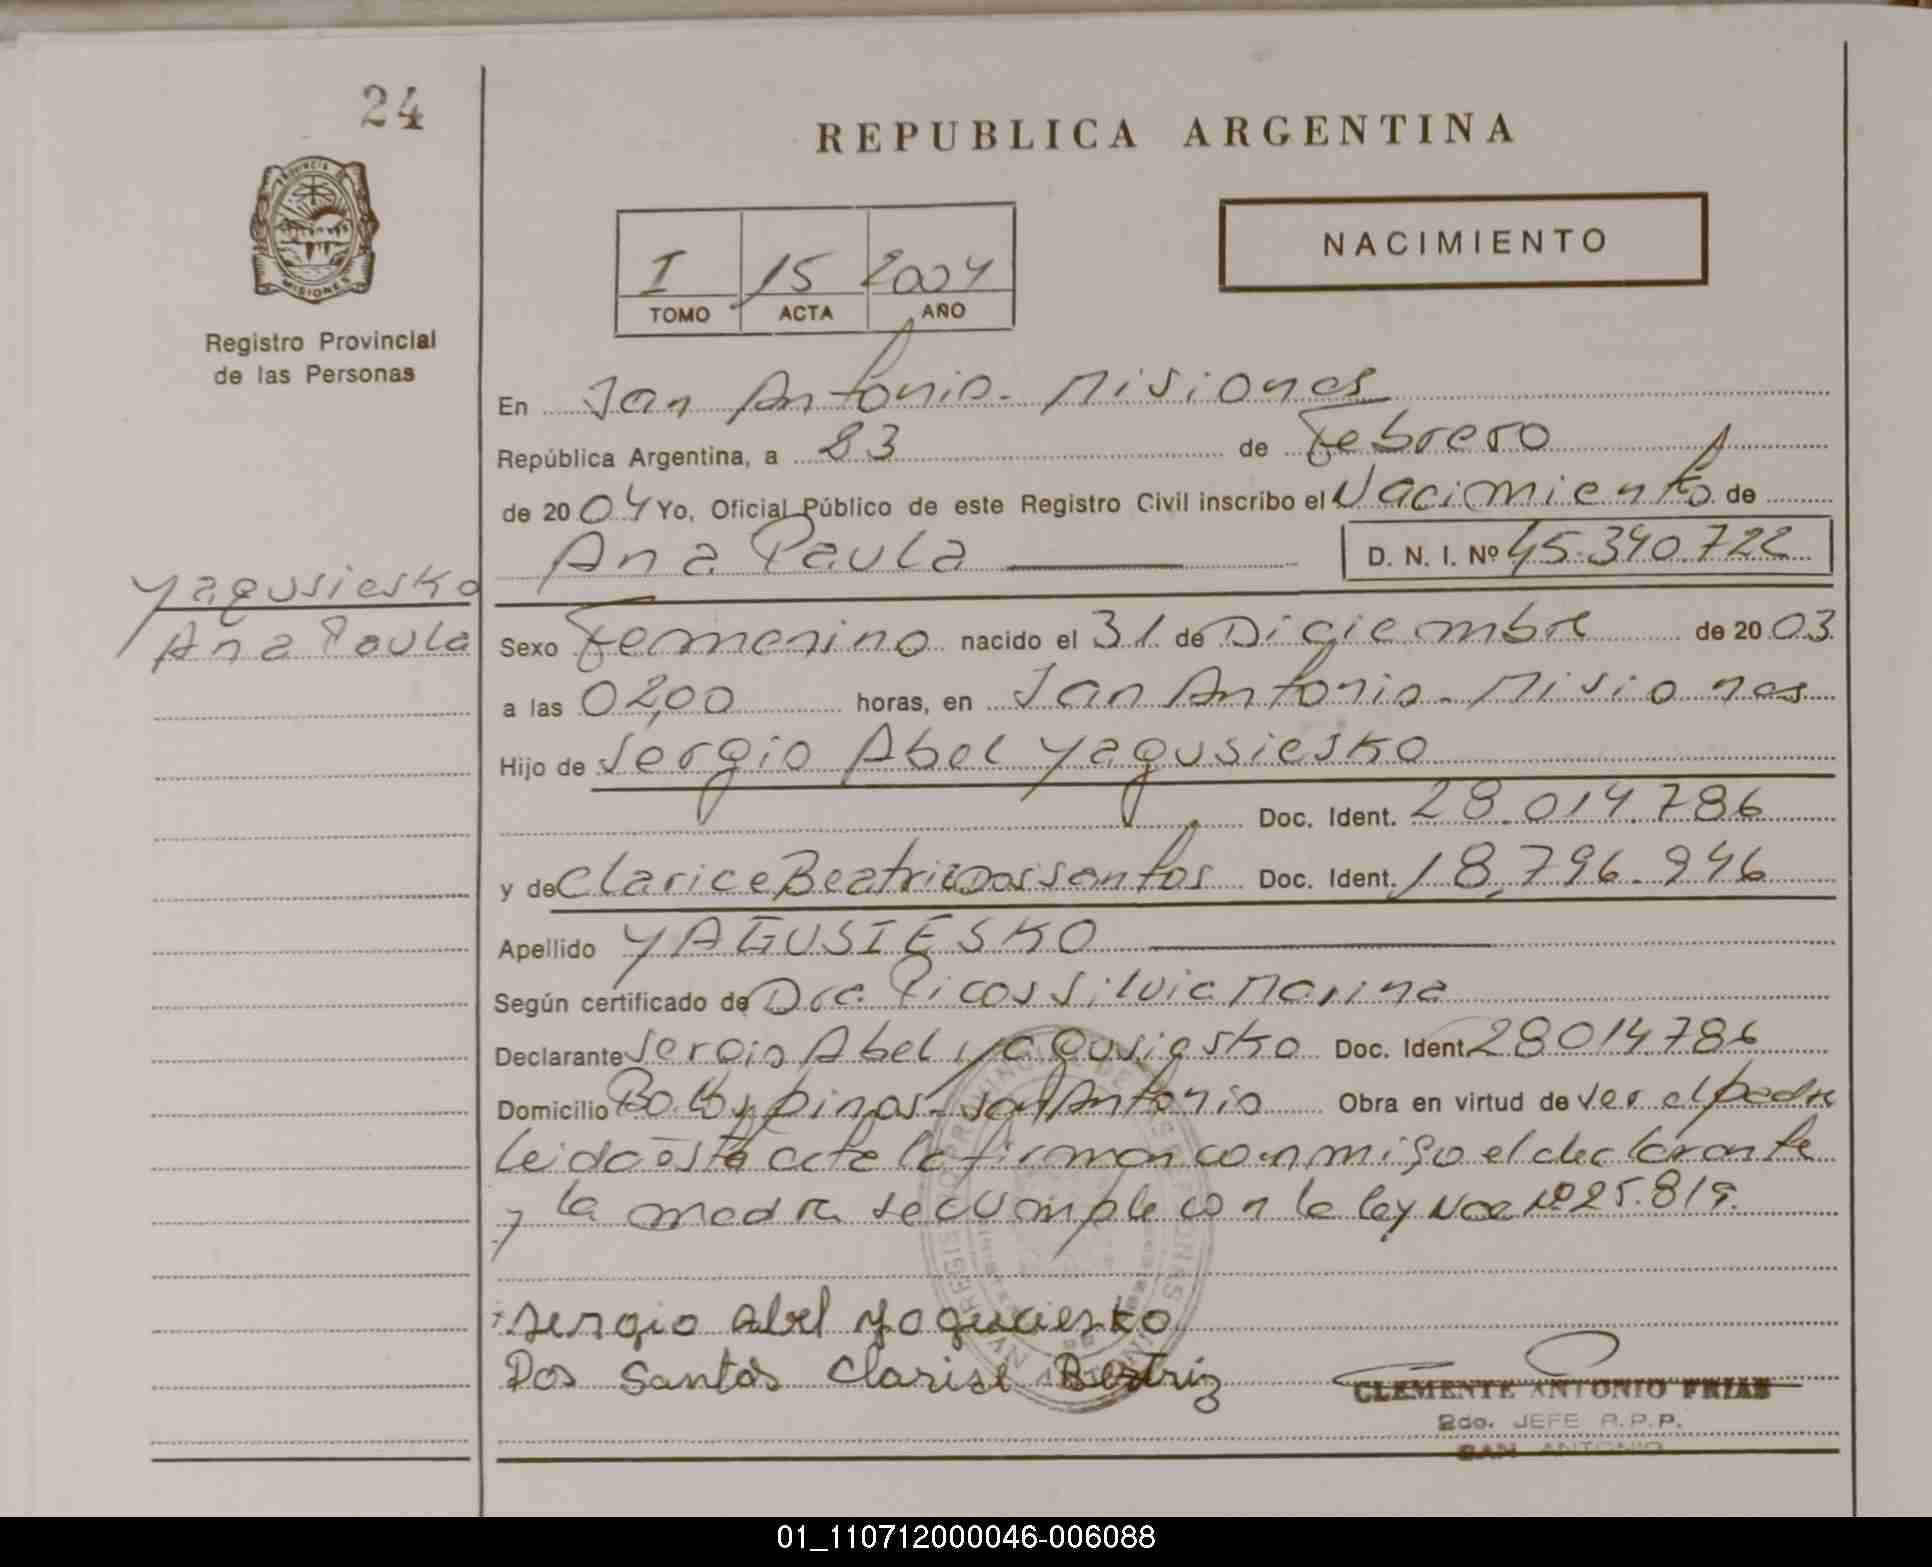 24
REPUBLICA ARGENTINA
PROVINCIA
MISIONES
Registro Provincial
de las Personas
NACIMIENTO
I 15 2004
TOMO ACTA AÑO
En San Antonio - Misiones
República Argentina, a 23 de Febrero
de 2004 Yo, Oficial Público de este Registro Civil inscribo el Nacimiento de
Ana Paula D. N. I. Nº 45.340.722
Yagusiesko
Ana Paula
Sexo Femenino nacido el 31 de Diciembre de 2003
a las 02,00 horas, en San Antonio - Misiones
Hijo de Sergio Abel Yagusiesko
Doc. Ident. 28.014.786
y de Clarice Beatriz Dos santos Doc. Ident. 18.796.946
Apellido YAGUSIESKO
Según certificado de Dra. Picos Silvia Marina
Declarante Sergio Abel Yagusiesko Doc. Ident. 28014.786
Domicilio Bo. Pinos - San Antonio Obra en virtud de ser el padre
Leida esta acta la firman conmigo el declarante
y la madre se cumple con la ley Nº 25.819.
Sergio Abel Yagusiesko
Dos Santos Clarise Beatriz
CLEMENTE ANTONIO FRIAS
2do. JEFE R.P.P.
SAN ANTONIO
01_110712000046-006088